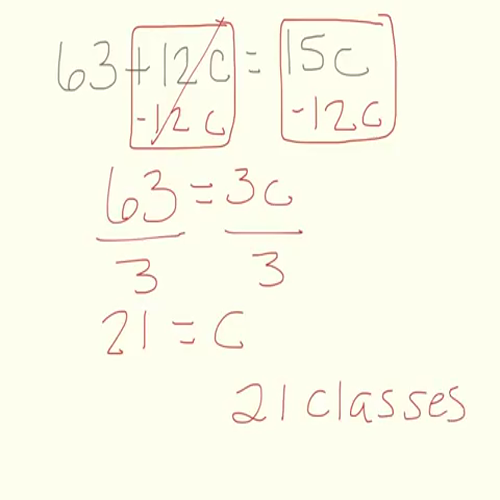 63+12c = 15c
-12c -12c
63 = 3c
3 3
21 = c
21 classes